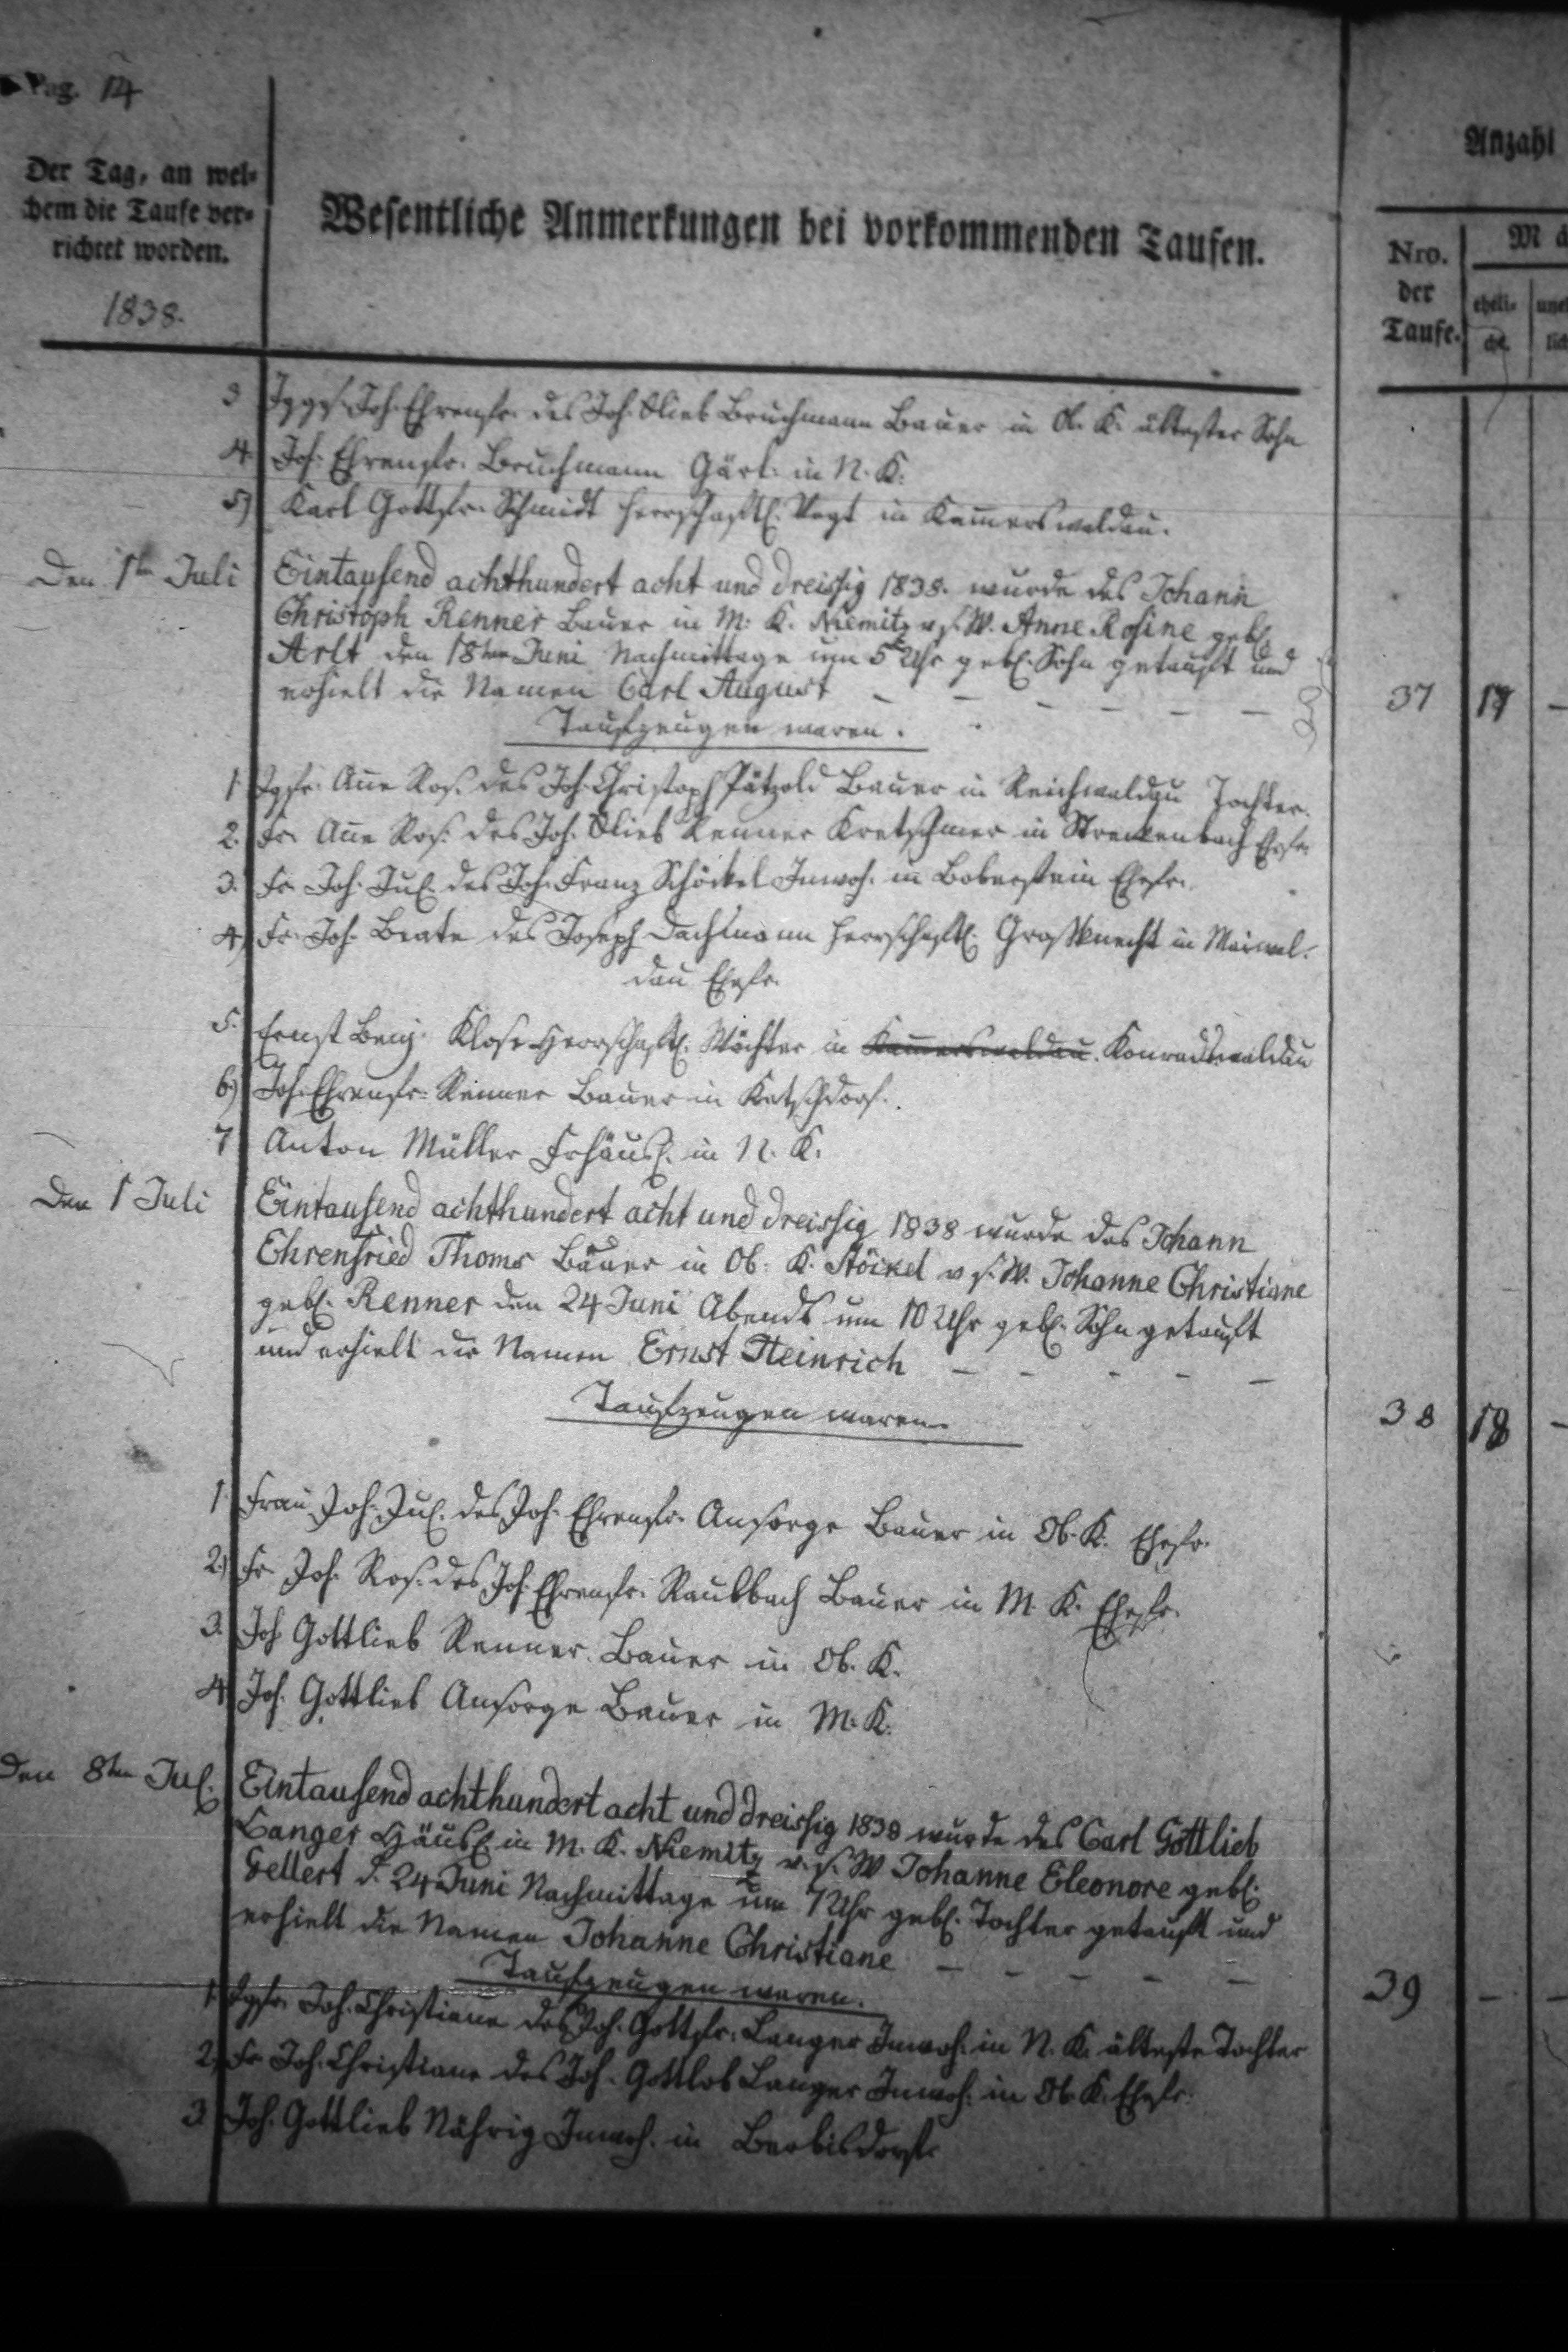 Pag. 14
Der Tag, an wel-
chem die Taufe ver-
richtet worden.
1838.
Wesentliche Anmerkungen bei vorkommenden Taufen.
Anzahl
Nro.
der
Taufe.
eheli-
che
3 Jggs. Joh. Ehrenfr. des Joh. Glieb Bruchmann Bauer in Ob. K. ältester Sohn
4. Joh. Ehrenfr. Bruchmann Gärt. in N. K.
5) Karl Gottfr. Schmidt herrschaftl. Vogt in Kam̄erswaldau.
Den 1ten Juli Eintausend achthundert acht und dreissig 1838. wurde des Johann
Christoph Renner Bauer in M. K. Niemitz v. s. W. Anne Rosine gebl.
Arlt den 18ten Juni Nachmittage um 5 Uhr gebl. Sohn getauft und
erhielt die Namen Carl August – – – – – –
37 17 –
Taufzeugen waren.
1 Jgfr. An̄e Ros. des Joh. Christoph Pätzold Bauer in Reichwaldau Tochter.
2. Fr. An̄e Ros. des Joh. Glieb Renner Kretschmer in Streckenbach Ehefr.
3. Fr. Joh. Jul. des Joh. Franz Schöckel Inwoh. in Boberstein Ehefr.
4) Fr. Joh. Beate des Joseph Dachmann herrschaftl. Großknecht in Maiwal-
dau Ehefr.
5. Ernst Benj. Klose Herrschaftl. Wächter in Kam̄erswaldau. Konradswaldau
6.) Joh. Ehrenfr. Renner Bauer in Ketschdorf.
7 Anton Müller Frhäusl. in N. K.
Den 1 Juli Eintausend achthundert acht und dreissig 1838 wurde des Johann
Ehrenfried Thoms Bauer in Ob. K. Stöckel v. s. W. Johanne Christiane
gebl. Renner den 24 Juni Abends um 10 Uhr gebl. Sohn getauft
und erhielt die Namen Ernst Heinrich – – – – –
38 18 –
Taufzeugen waren.
1. Frau Joh. Jul. des Joh. Ehrenfr. Ansorge Bauer in Ob. K. Ehefr.
2.) Fr. Joh. Ros. des Joh. Ehrenfr. Raubbach Bauer in M. K. Ehefr.
3. Joh Gottlieb Renner. Bauer in Ob. K.
4 Joh. Gottlieb Ansorge Bauer in M. K.
Den 8ten Jul. Eintausend achthundert acht und dreissig 1838 wurde des Carl Gottlieb
Langer Häusl. in M. K. Niemitz v. s. W Johanne Eleonore gebl.
Gellert d. 24 Juni Nachmittage um 7 Uhr gebl. Tochter getauft und
erhielt die Namen Johanne Christiane – – – – –
39 – –
Taufzeugen waren.
1. Jgfr. Joh. Christiane des Joh. Gottfr. Langer Inwoh. in N. K. älteste Tochter
2. Fr. Joh. Christiane des Joh. Gottlob Langer Inwoh. in Ob. K. Ehefr.
3. Joh. Gottlieb Nährig Inwoh. in Berbisdorf.